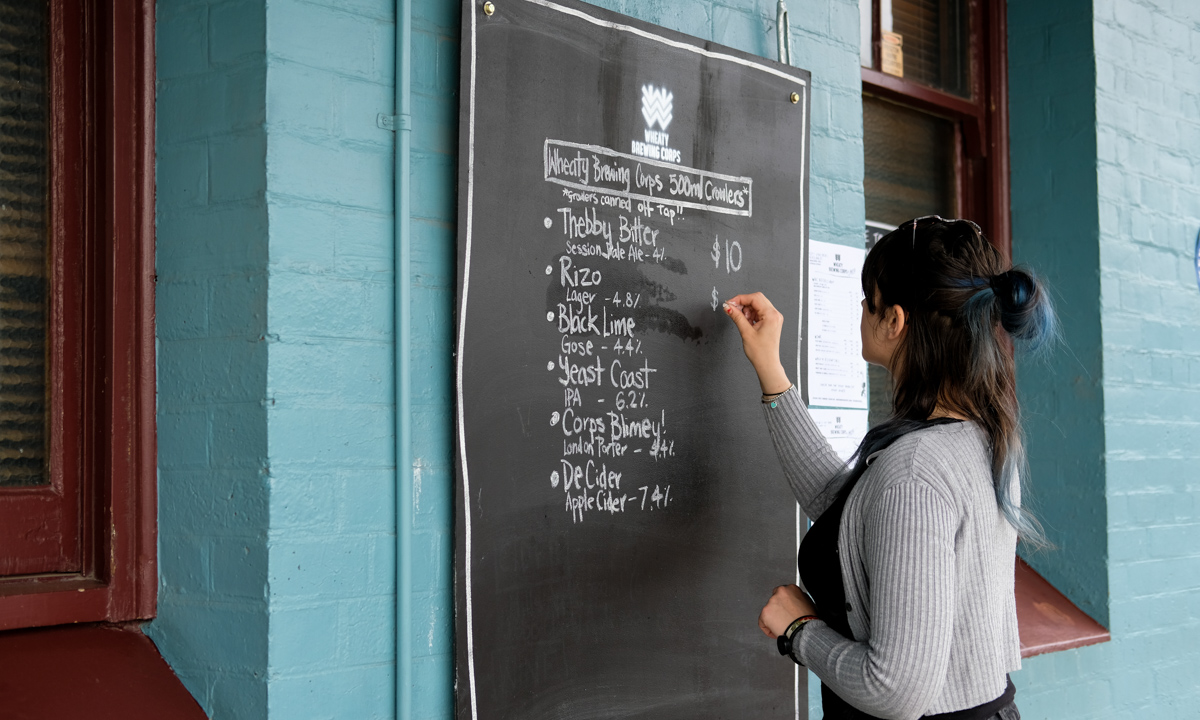 WHEATY
BREWING CORPS
Wheaty Brewing Corps 500ml Crowlers*
*Growlers canned off Tap!!
Thebby Bitter
Session Pale Ale - 4%
$10
Rizo
Lager - 4.8%
$
Black Lime
Gose - 4.4%
Yeast Coast
IPA - 6.2%
Corps Blimey!
London Porter -
De Cider
Apple Cider - 7.4%
WHEATY
BREWING CORPS